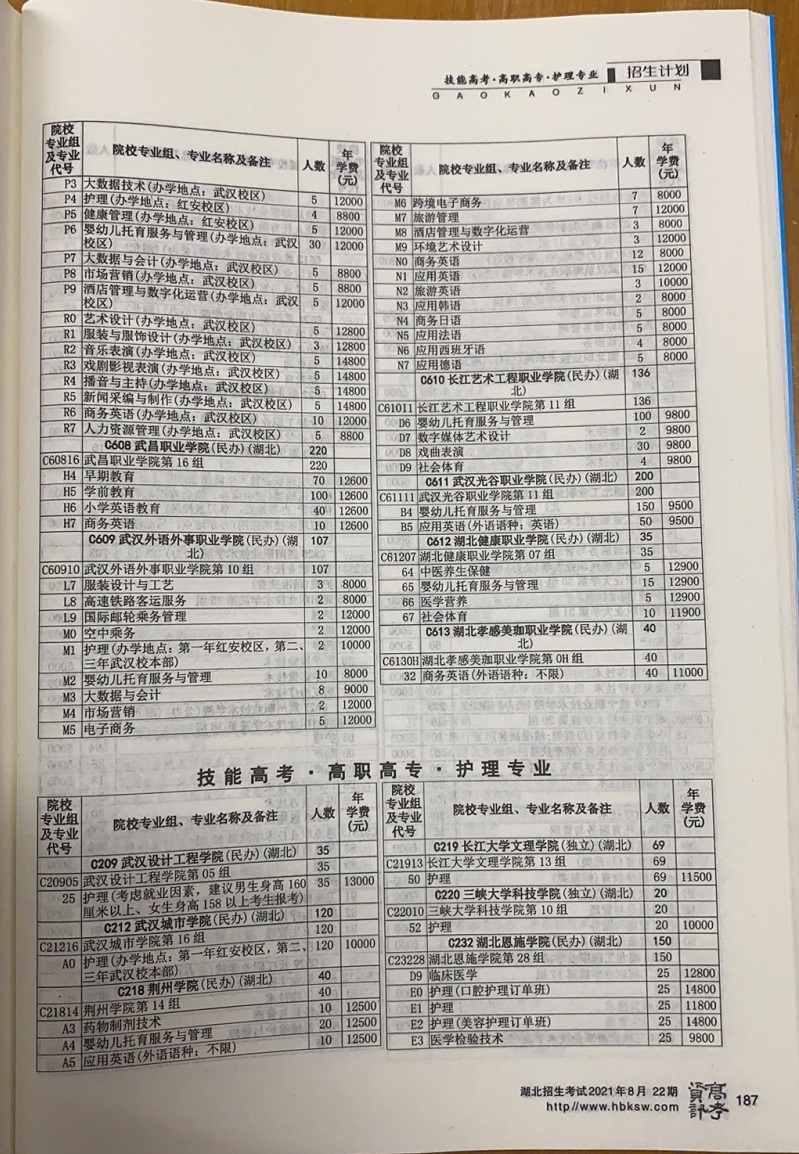 技能高考·高职高专·护理专业 招生计划
GAOKAOZIXUN
院校专业组及专业代号 院校专业组、专业名称及备注 人数 年学费(元)
P3 大数据技术(办学地点：武汉校区) 5 12000
P4 护理(办学地点：红安校区) 4 8800
P5 健康管理(办学地点：红安校区) 5 12000
P6 婴幼儿托育服务与管理(办学地点：武汉 30 12000
校区)
P7 大数据与会计(办学地点：武汉校区) 5 8800
P8 市场营销(办学地点：武汉校区) 5 8800
P9 酒店管理与数字化运营(办学地点：武汉 5 12000
校区)
R0 艺术设计(办学地点：武汉校区) 5 12800
R1 服装与服饰设计(办学地点：武汉校区) 3 12800
R2 音乐表演(办学地点：武汉校区) 5 14800
R3 戏剧影视表演(办学地点：武汉校区) 5 14800
R4 播音与主持(办学地点：武汉校区) 5 14800
R5 新闻采编与制作(办学地点：武汉校区) 5 14800
R6 商务英语(办学地点：武汉校区) 10 12000
R7 人力资源管理(办学地点：武汉校区) 5 8800
C608 武昌职业学院(民办)(湖北) 220
C60816 武昌职业学院第 16 组 220
H4 早期教育 70 12600
H5 学前教育 100 12600
H6 小学英语教育 40 12600
H7 商务英语 10 12600
C609 武汉外语外事职业学院(民办)(湖 107
北)
C60910 武汉外语外事职业学院第 10 组 107
L7 服装设计与工艺 3 8000
L8 高速铁路客运服务 2 8000
L9 国际邮轮乘务管理 2 12000
M0 空中乘务 2 12000
M1 护理(办学地点：第一年红安校区，第二、 2 10000
三年武汉校本部)
M2 婴幼儿托育服务与管理 10 8000
M3 大数据与会计 8 9000
M4 市场营销 2 12000
M5 电子商务 5 12000
院校专业组及专业代号 院校专业组、专业名称及备注 人数 年学费(元)
M6 跨境电子商务 7 8000
M7 旅游管理 7 12000
M8 酒店管理与数字化运营 3 8000
M9 环境艺术设计 3 12000
N0 商务英语 12 8000
N1 应用英语 15 12000
N2 旅游英语 3 10000
N3 应用韩语 2 8000
N4 商务日语 5 8000
N5 应用法语 5 8000
N6 应用西班牙语 4 8000
N7 应用德语 5 8000
C610 长江艺术工程职业学院(民办)(湖 136
北)
C61011 长江艺术工程职业学院第 11 组 136
D6 婴幼儿托育服务与管理 100 9800
D7 数字媒体艺术设计 2 9800
D8 戏曲表演 30 9800
D9 社会体育 4 9800
C611 武汉光谷职业学院(民办)(湖北) 200
C61111 武汉光谷职业学院第 11 组 200
B4 婴幼儿托育服务与管理 150 9500
B5 应用英语(外语语种：英语) 50 9500
C612 湖北健康职业学院(民办)(湖北) 35
C61207 湖北健康职业学院第 07 组 35
64 中医养生保健 5 12900
65 婴幼儿托育服务与管理 15 12900
66 医学营养 5 12900
67 社会体育 10 11900
C613 湖北孝感美珈职业学院(民办)(湖 40
北)
C6130H 湖北孝感美珈职业学院第 0H 组 40
32 商务英语(外语语种：不限) 40 11000
技能高考·高职高专·护理专业
院校专业组及专业代号 院校专业组、专业名称及备注 人数 年学费(元)
C209 武汉设计工程学院(民办)(湖北) 35
C20905 武汉设计工程学院第 05 组 35
25 护理(考虑就业因素，建议男生身高 160 35 13000
厘米以上、女生身高 158 以上考生报考)
C212 武汉城市学院(民办)(湖北) 120
C21216 武汉城市学院第 16 组 120
A0 护理(办学地点：第一年红安校区，第二、 120 10000
三年武汉校本部)
C218 荆州学院(民办)(湖北) 40
C21814 荆州学院第 14 组 40
A3 药物制剂技术 10 12500
A4 婴幼儿托育服务与管理 20 12500
A5 应用英语(外语语种：不限) 10 12500
院校专业组及专业代号 院校专业组、专业名称及备注 人数 年学费(元)
C219 长江大学文理学院(独立)(湖北) 69
C21913 长江大学文理学院第 13 组 69
50 护理 69 11500
C220 三峡大学科技学院(独立)(湖北) 20
C22010 三峡大学科技学院第 10 组 20
52 护理 20 10000
C232 湖北恩施学院(民办)(湖北) 150
C23228 湖北恩施学院第 28 组 150
D9 临床医学 25 12800
E0 护理(口腔护理订单班) 25 14800
E1 护理 25 11800
E2 护理(美容护理订单班) 25 14800
E3 医学检验技术 25 9800
湖北招生考试2021年8月 22期 高考資訊 187
http://www.hbksw.com